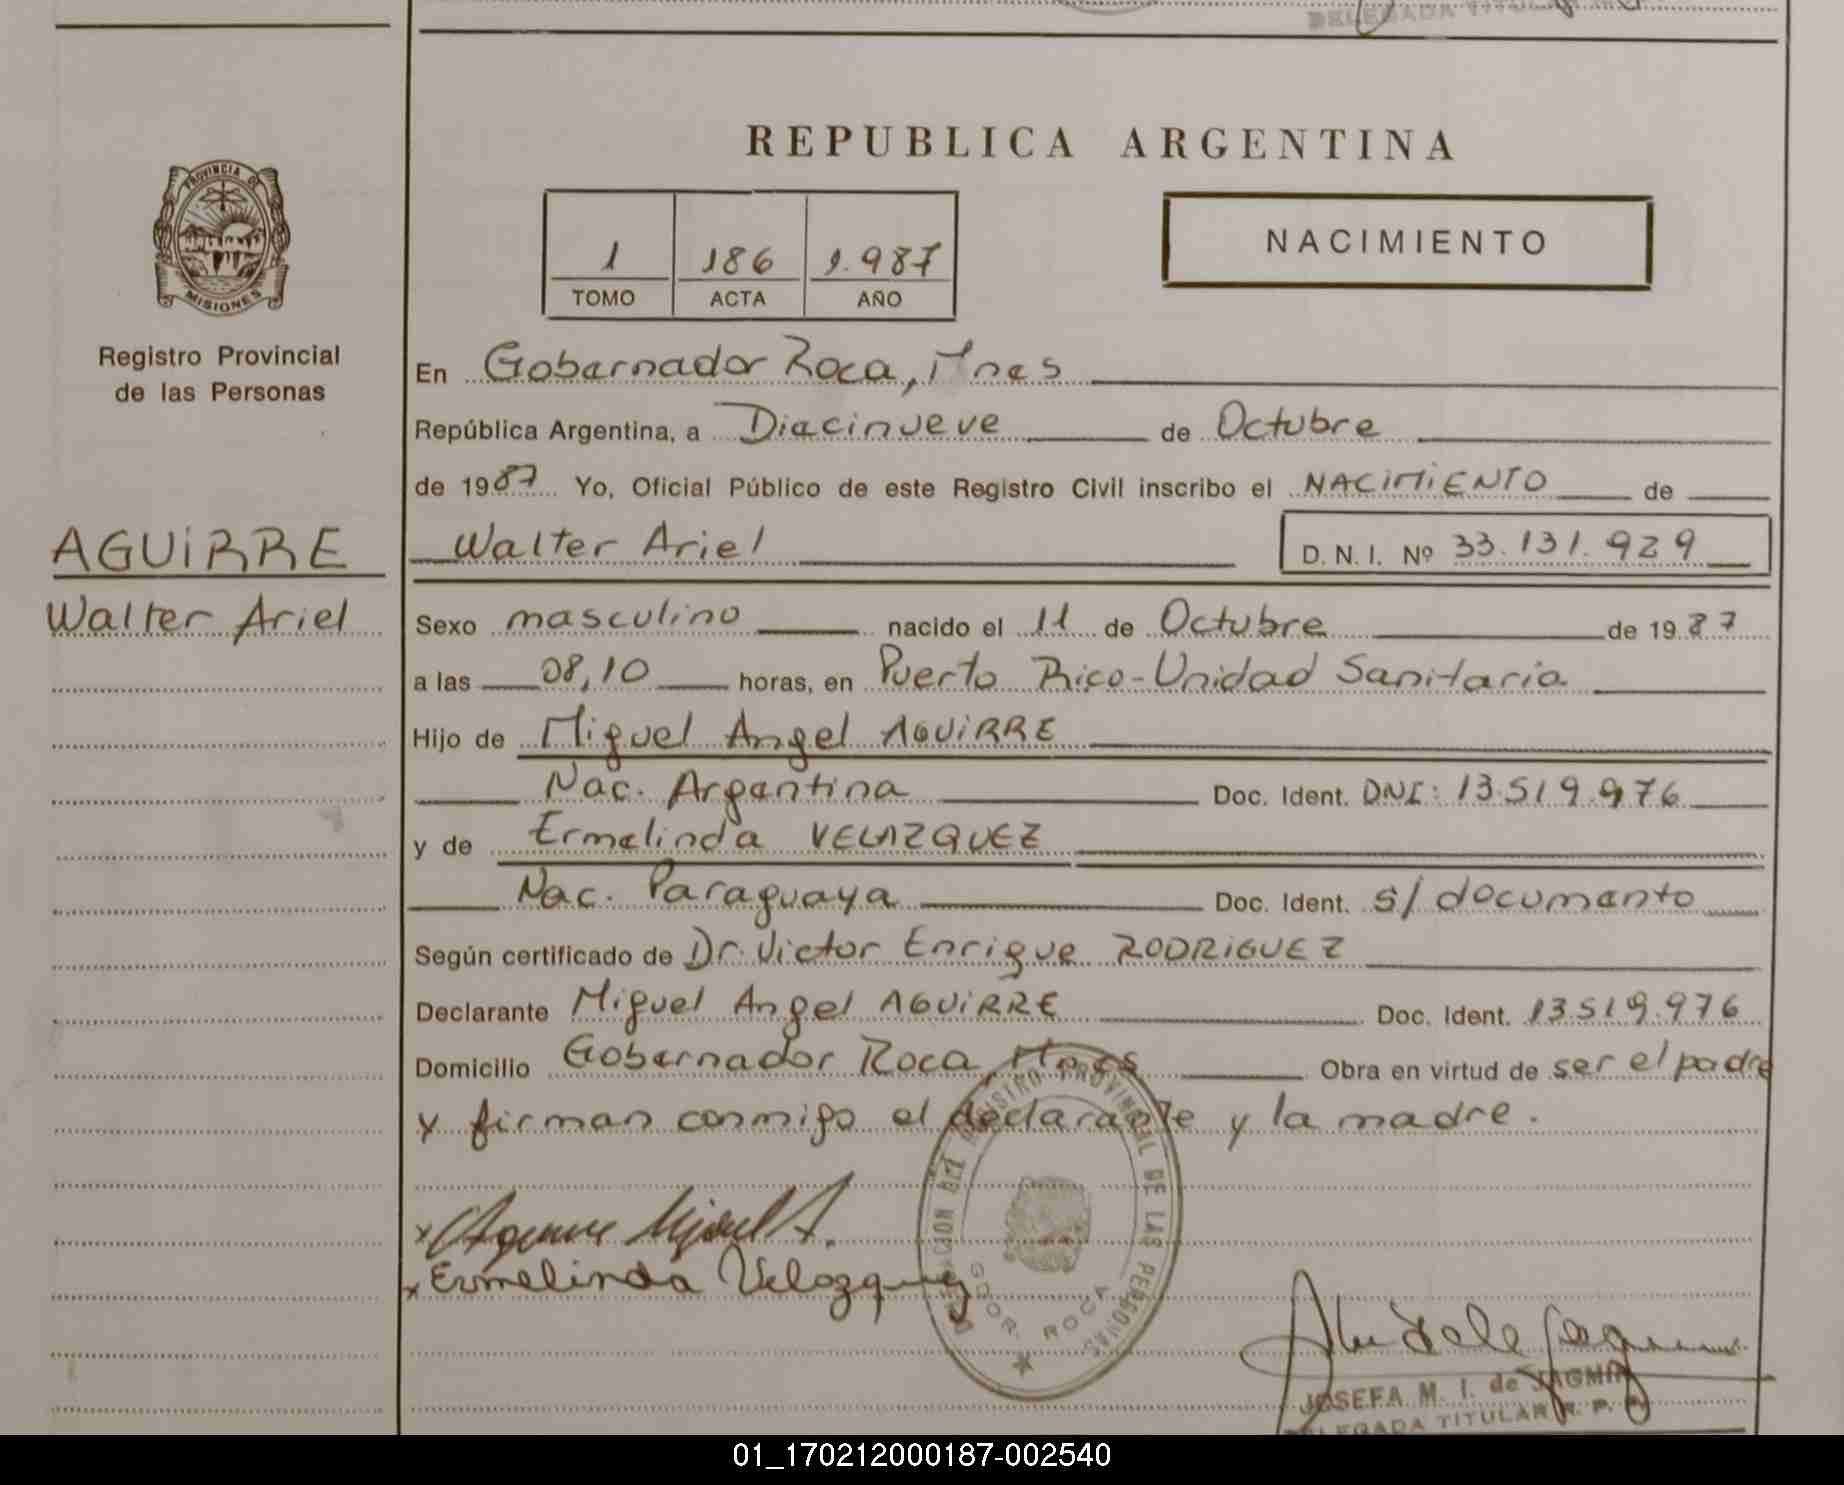 DELEGADA TITULAR
REPUBLICA ARGENTINA
PROVINCIA DE
MISIONES
Registro Provincial
de las Personas
1 186 1.987
TOMO ACTA AÑO
NACIMIENTO
En Gobernador Roca, Mnes
República Argentina, a Diecinueve de Octubre
de 1987 Yo, Oficial Público de este Registro Civil inscribo el NACIMIENTO de
AGUIRRE
Walter Ariel
Walter Ariel D.N.I. Nº 33.131.929
Sexo masculino nacido el 11 de Octubre de 1987
a las 08,10 horas, en Puerto Rico-Unidad Sanitaria
Hijo de Miguel Angel AGUIRRE
Nac. Argentina Doc. Ident. DNI: 13.519.976
y de Ermelinda VELAZQUEZ
Nac. Paraguaya Doc. Ident. s/ documento
Según certificado de Dr. Victor Enrique RODRIGUEZ
Declarante Miguel Angel AGUIRRE Doc. Ident. 13.519.976
Domicilio Gobernador Roca, Mnes Obra en virtud de ser el padre
y firman conmigo el declarante y la madre.
x Aguirre Miguel A.
x Ermelinda Velozquez
DELEGACION DEL REGISTRO PROVINCIAL DE LAS PERSONAS
GDOR. ROCA
JOSEFA M. I. de JAGMIN
DELEGADA TITULAR R. P. P.
01_170212000187-002540